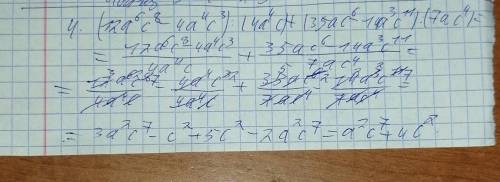 4. (12a⁶c⁸ - 4a⁴c³) : (4a⁴c) + (35ac⁶ - 14a³c¹¹) : (7ac⁴) =
= (12a⁶c⁸ - 4a⁴c³)/(4a⁴c) + (35ac⁶ - 14a³c¹¹)/(7ac⁴) =
= 12a⁶c⁸/4a⁴c - 4a⁴c³/4a⁴c + 35ac⁶/7ac⁴ - 14a³c¹¹/7ac⁴ =
= 3a²c⁷ - c² + 5c² - 2a²c⁷ = a²c⁷ + 4c²